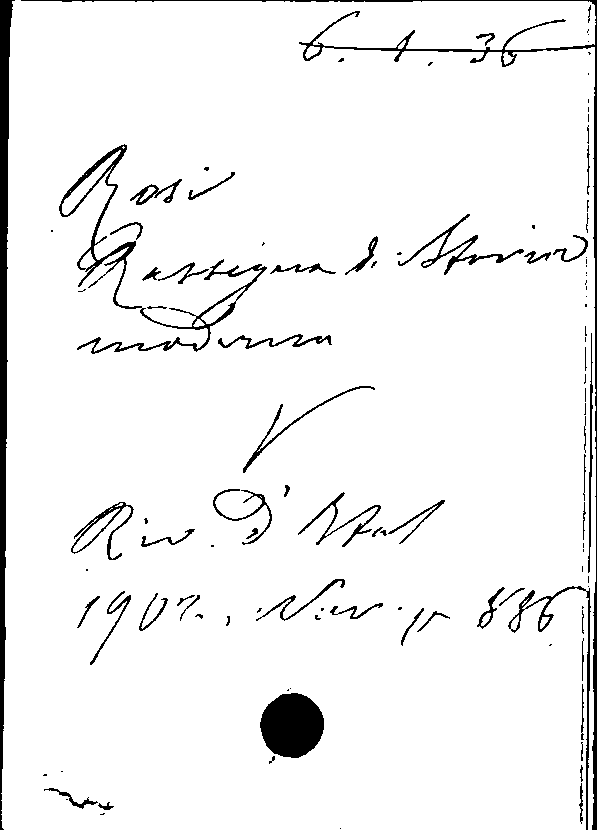 6. 1. 36
Rosi
Rassegna di Storia
moderna
V
Riv. d'Ital
1902., Nov. p 886